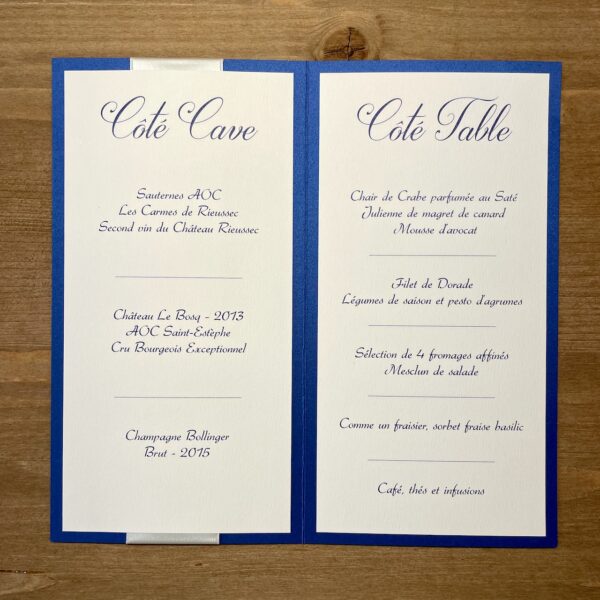 Côté Cave
Sauternes AOC
Les Carmes de Rieussec
Second vin du Château Rieussec
Château Le Bosq - 2013
AOC Saint-Estèphe
Cru Bourgeois Exceptionnel
Champagne Bollinger
Brut - 2015
Côté Table
Chair de Crabe parfumée au Saté
Julienne de magret de canard
Mousse d'avocat
Filet de Dorade
Légumes de saison et pesto d'agrumes
Sélection de 4 fromages affinés
Mesclun de salade
Comme un fraisier, sorbet fraise basilic
Café, thés et infusions